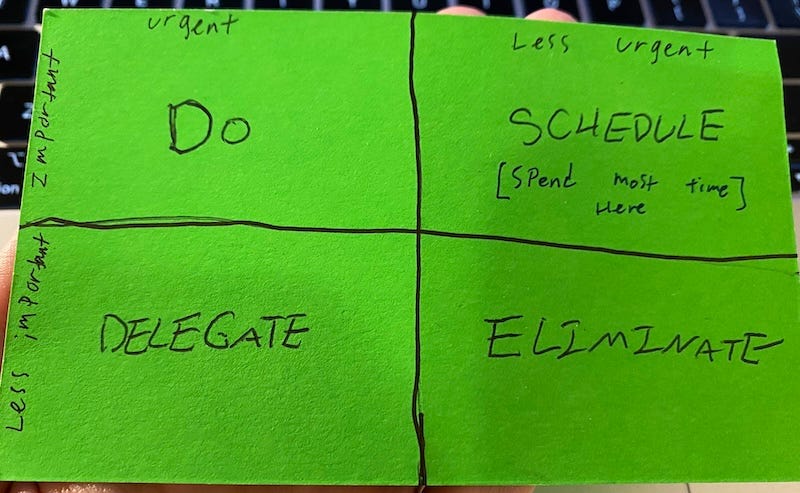 urgent
Less urgent
Important
Do
SCHEDULE
[Spend most time]
Here
Less important
DELEGATE
ELIMINATE